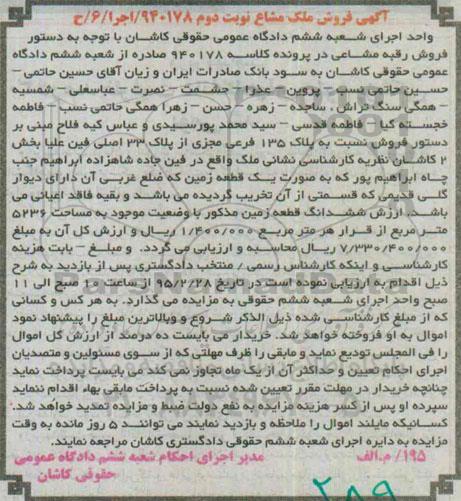 آگهی فروش ملک مشاع نوبت دوم ۹۴۰۱۷۸/اجرا/۶/ح
واحد اجرای شعبه ششم دادگاه عمومی حقوقی کاشان با توجه به دستور
فروش رقبه مشاعی در پرونده کلاسه ۹۴۰۱۷۸ صادره از شعبه ششم دادگاه
عمومی حقوقی کاشان به سود بانک صادرات ایران و زیان آقای حسین حاتمی –
حسین حاتمی نسب – پروین – عذرا – حشمت – نصرت – عباسعلی – شمسیه
– همگی سنگ تراش . ساجده – زهره – حسن – زهرا همگی حاتمی نسب – فاطمه
خجسته کیا – فاطمه قدسی – سید محمد پورسیدی و عباس کیه فلاح مبنی بر
دستور فروش نسبت به پلاک ۱۳۵ فرعی مجزی از پلاک ۳۳ اصلی فین علیا بخش
۲ کاشان نظریه کارشناسی نشانی ملک واقع در فین جاده شاهزاده ابراهیم جنب
چاه ابراهیم پور که به صورت یک قطعه زمین که ضلع غربی آن دارای دیوار
گلی قدیمی که قسمتی از آن تخریب گردیده می باشد و بقیه فاقد اعیانی می
باشد. ارزش ششدانگ قطعه زمین مذکور با وضعیت موجود به مساحت ۵۲۳۶
متر مربع از قرار هر متر مربع ۱/۴۰۰/۰۰۰ ریال و ارزش کل آن به مبلغ
۷/۳۳۰/۴۰۰/۰۰۰ ریال محاسبه و ارزیابی می گردد. و مبلغ – بابت هزینه
کارشناسی و اینکه کارشناس رسمی / منتخب دادگستری پس از بازدید به شرح
ذیل اقدام به ارزیابی نموده است در تاریخ ۹۵/۲/۲۸ از ساعت ۱۰ صبح الی ۱۱
صبح واحد اجرای شعبه ششم حقوقی به مزایده می گذارد. به هر کس و کسانی
که از مبلغ کارشناسی شده ذیل الذکر شروع و وبالاترین مبلغ را پیشنهاد نمود
اموال به او فروخته خواهد شد. خریدار می بایست ده درصد از ارزش کل اموال
را فی المجلس تودیع نماید و مابقی را ظرف مهلتی که از سوی مسئولین و متصدیان
اجرای احکام تعیین و حداکثر آن از یک ماه تجاوز نمی کند می بایست پرداخت نماید
چنانچه خریدار در مهلت مقرر تعیین شده نسبت به پرداخت مابقی بهاء اقدام ننماید
سپرده او پس از کسر هزینه مزایده به نفع دولت ضبط و مزایده تمدید خواهد شد.
کسانیکه مایلند اموال را ملاحظه و بازدید نمایند می توانند ۵ روز مانده به وقت
مزایده به دایره اجرای شعبه ششم حقوقی دادگستری کاشان مراجعه نمایند.
۱۹۵/ م.الف
مدیر اجرای احکام شعبه ششم دادگاه عمومی
حقوقی کاشان
۲۸۹